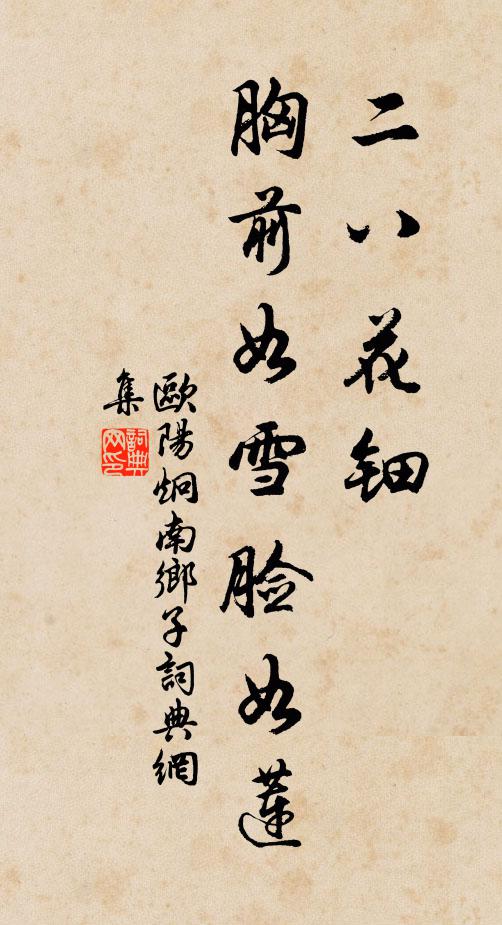 二八花钿
胸前如雪脸如莲
歐陽炯南鄉子詞典網
集
詞典
网印